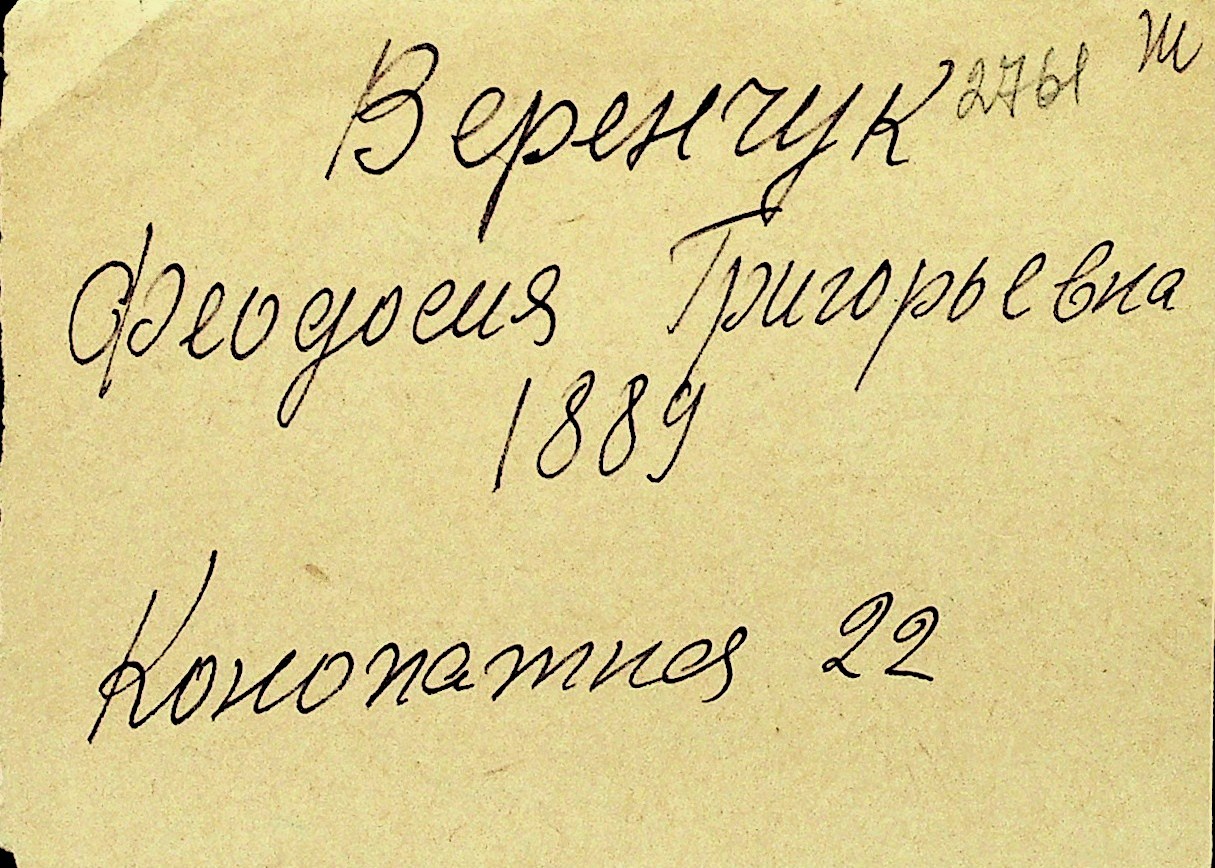 Веренчук 2761 Ж
Феодосия Григорьевна
1889
Конопатная 22